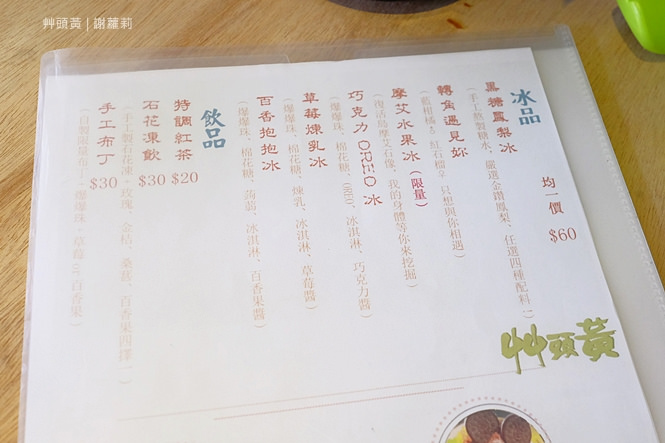 艸頭黃 | 謝蘿莉
冰品
均一價 $60
黑糖鳳梨冰
(手工熬製糖水、嚴選金鑽鳳梨、任選四種配料!)
轉角遇見妳
(藍柑橘&紅石榴 只想與你相遇)
摩艾水果冰(限量)
(復活島摩艾石像,我的身體等你來挖掘)
巧克力OREO冰
(爆爆珠、棉花糖、OREO、冰淇淋、巧克力醬)
草莓煉乳冰
(爆爆珠、棉花糖、煉乳、冰淇淋、草莓醬)
百香抱抱冰
(爆爆珠、棉花糖、蒟蒻、冰淇淋、百香果醬)
飲品
特調紅茶 $20
石花凍飲 $30
(手工製石花凍+玫瑰、金桔、桑葚、百香果四擇一)
手工布丁 $30
(自製限量布丁+爆爆珠、草莓or百香果)
艸頭黃